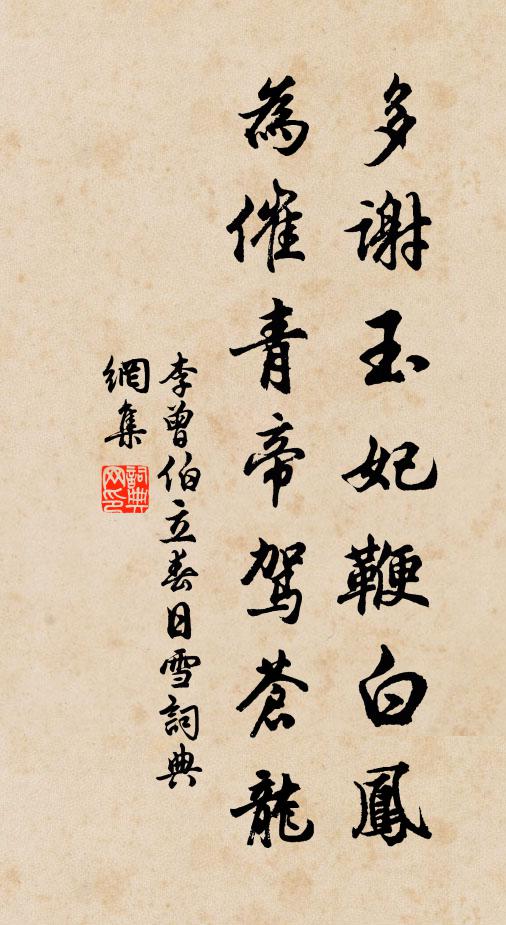 多謝玉妃鞭白鳳
為催青帝駕蒼龍
李曾伯立春日雪詞典
網集
詞典網印